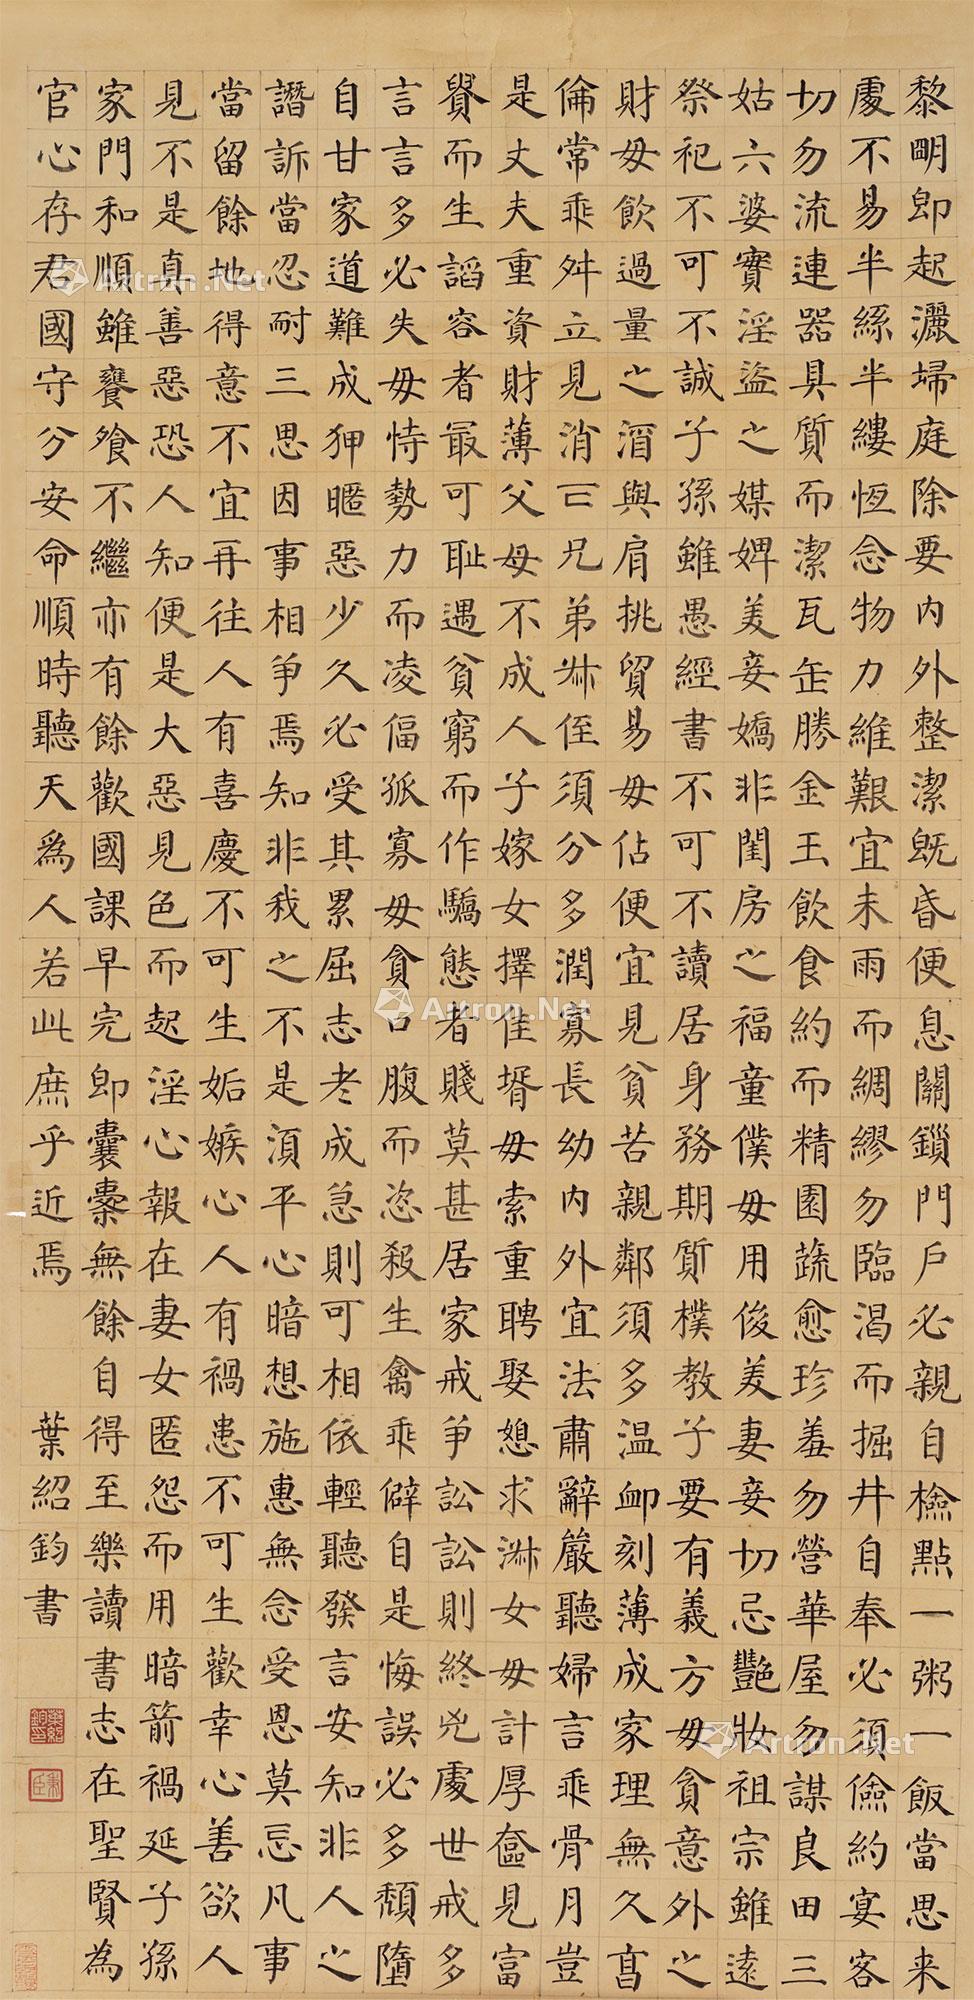 黎明即起灑埽庭除要內外整潔既昏便息關鎖門戶必親自檢點一粥一飯當思來
處不易半絲半縷恆念物力維艱宜未雨而綢繆勿臨渴而掘井自奉必須儉約宴客
切勿流連器具質而潔瓦缶勝金玉飲食約而精園蔬愈珍羞勿營華屋勿謀良田三
姑六婆實淫盜之媒婢美妾嬌非閨房之福童僕毋用俊美妻妾切忌豔妝祖宗雖遠
祭祀不可不誠子孫雖愚經書不可不讀居身務期質樸教子要有義方毋貪意外之
財毋飲過量之酒與肩挑貿易毋佔便宜見貧苦親鄰須多溫卹刻薄成家理無久享
倫常乖舛立見消亡兄弟叔侄須分多潤寡長幼內外宜法肅辭嚴聽婦言乖骨月豈
是丈夫重資財薄父母不成人子嫁女擇佳壻毋索重聘娶媳求淑女毋計厚奩見富
貴而生諂容者最可恥遇貧窮而作驕態者賤莫甚居家戒爭訟訟則終兇處世戒多
言言多必失毋恃勢力而凌偪孤寡毋貪口腹而恣殺生禽乖僻自是悔誤必多頹墮
自甘家道難成狎暱惡少久必受其累屈志老成急則可相依輕聽發言安知非人之
譖訴當忍耐三思因事相爭焉知非我之不是須平心暗想施惠無念受恩莫忘凡事
當留餘地得意不宜再往人有喜慶不可生妬嫉心人有禍患不可生歡幸心善欲人
見不是真善惡恐人知便是大惡見色而起淫心報在妻女匿怨而用暗箭禍延子孫
家門和順雖饔飧不繼亦有餘歡國課早完即囊橐無餘自得至樂讀書志在聖賢為
官心存君國守分安命順時聽天為人若此庶乎近焉
葉紹鈞書
葉紹鈞印
Artron.Net
Artron.Net
Artron.Net